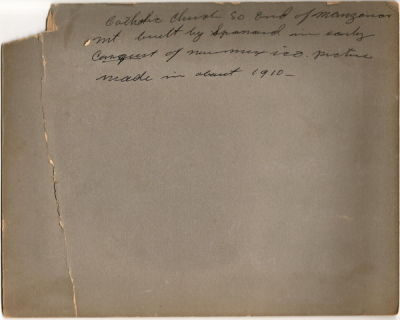 Catholic Church So End of Manzanas
mt. built by Spanard in early
Conquest of new mex ico. Picture
made in about 1910 -